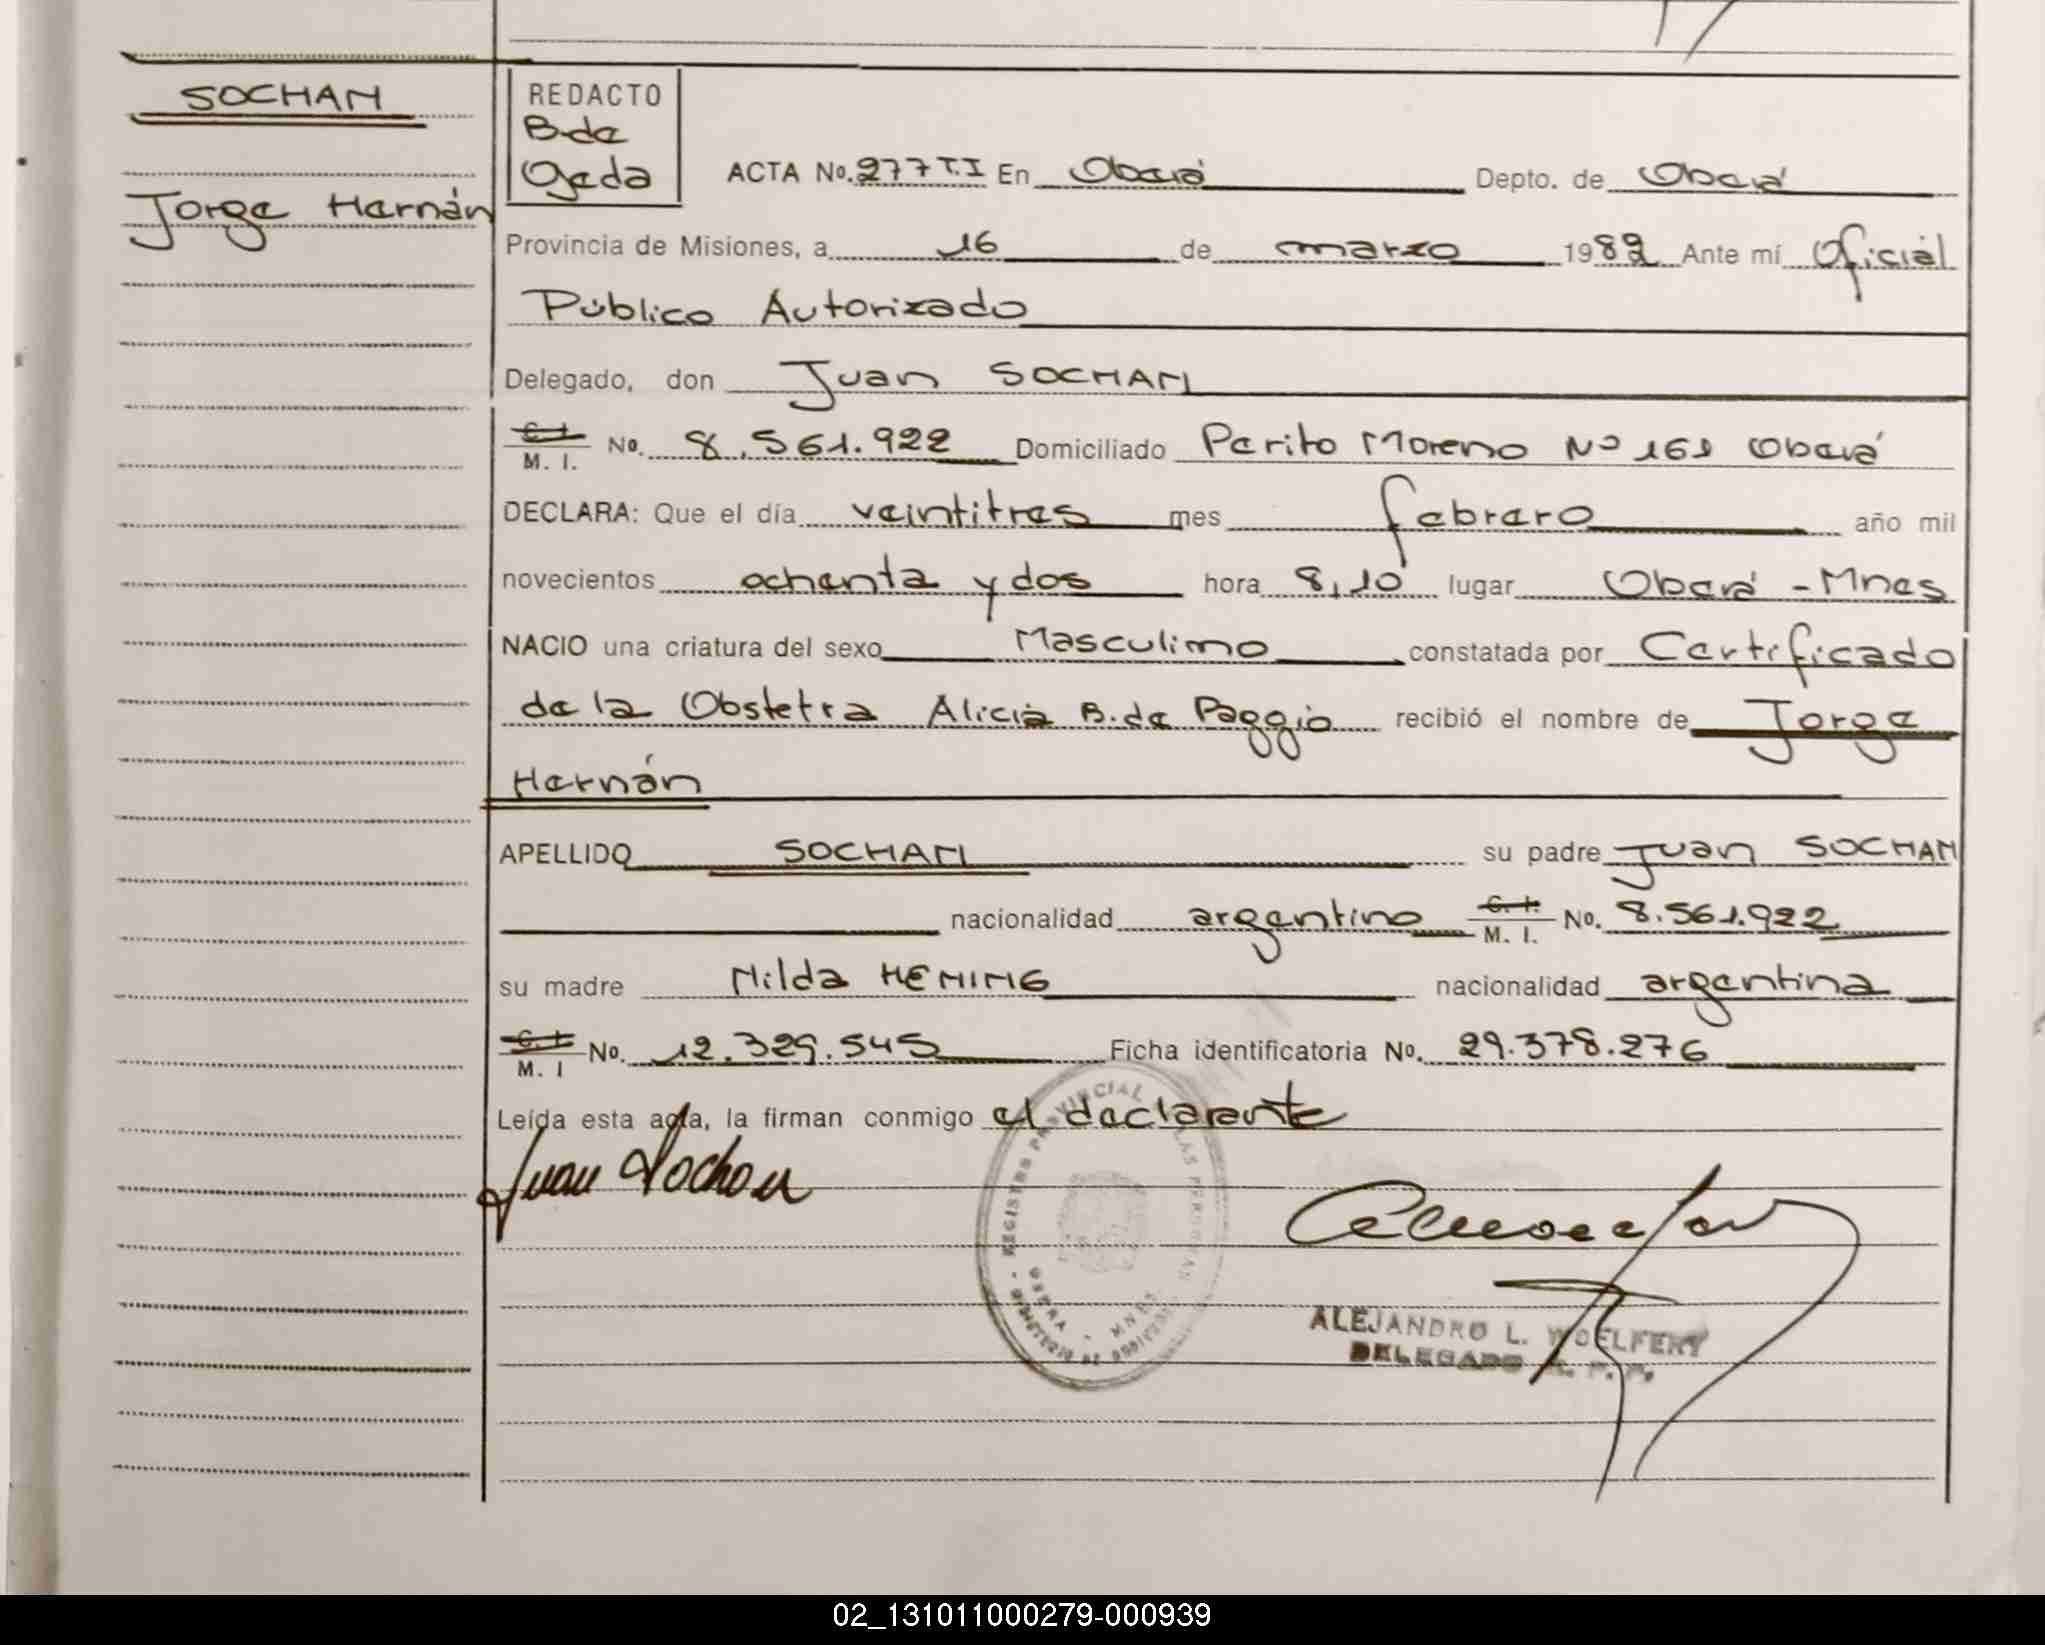 SOCHAN
Jorge Hernán
REDACTO
B.de
Ojeda
ACTA No. 277 T.I En Oberá Depto. de Oberá
Provincia de Misiones, a 16 de marzo 1982 Ante mí Oficial
Público Autorizado
Delegado, don Juan SOCHAN
C. I. M. I. No. 8.561.922 Domiciliado Perito Moreno Nº 161 Oberá
DECLARA: Que el día veintitres mes febrero año mil
novecientos ochenta y dos hora 8,10 lugar Oberá - Mnes
NACIO una criatura del sexo Masculino constatada por Certificado
de la Obstetra Alicia B. de Paggio recibió el nombre de Jorge
Hernán
APELLIDO SOCHAN su padre Juan SOCHAN
nacionalidad argentino C. I. M. I. No. 8.561.922
su madre Nilda HENING nacionalidad argentina
C. I. M. I No. 12.329.545 Ficha identificatoria No. 29.378.276
Leída esta acta, la firman conmigo el declarante
Juan Sochan
REGISTRO PROVINCIAL DE LAS PERSONAS
OBERA - MNES
MINISTERIO DE GOBIERNO
ALEJANDRO L. WOELFERT
DELEGADO R. P. P.
02_131011000279-000939